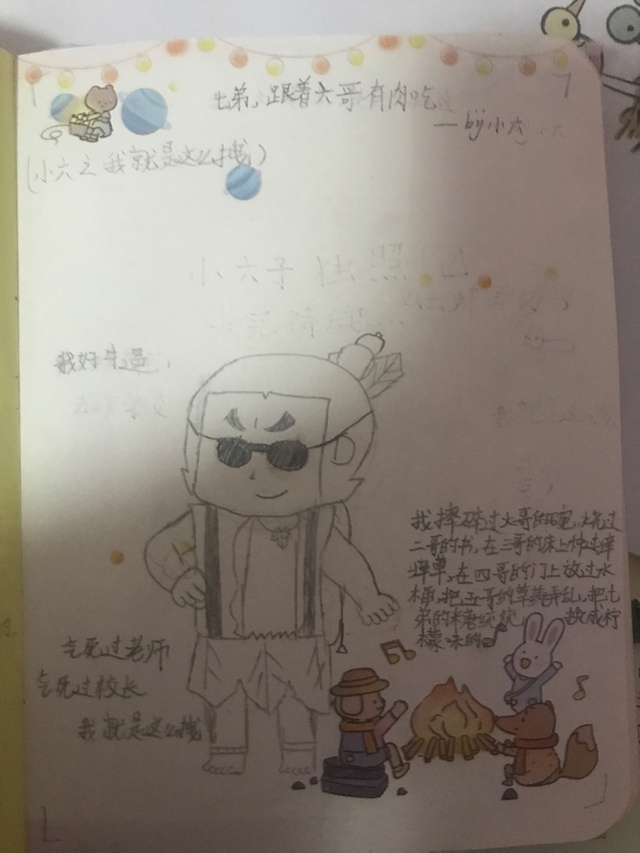 七弟，跟着六哥有肉吃
—by小六
(小六之我就是这么拽)
小六子
我好牛逼，
我摔碎过大哥的碗，烧过
二哥的书，在三哥的床上
在四哥的门上放过水
桶，把五哥的草药弄乱，把七
弟的 换成柠
檬味的
气死过老师
气死过校长
我就是这么拽